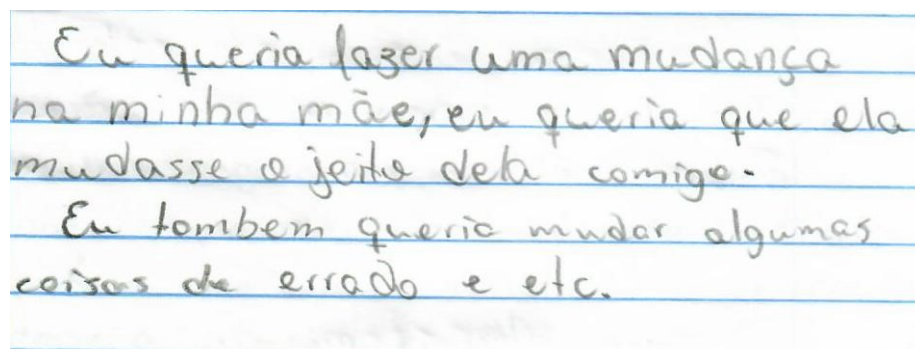 Eu queria fazer uma mudança
na minha mãe, eu queria que ela
mudasse o jeito dela comigo.
Eu tambem queria mudar algumas
coisas de errado e etc.